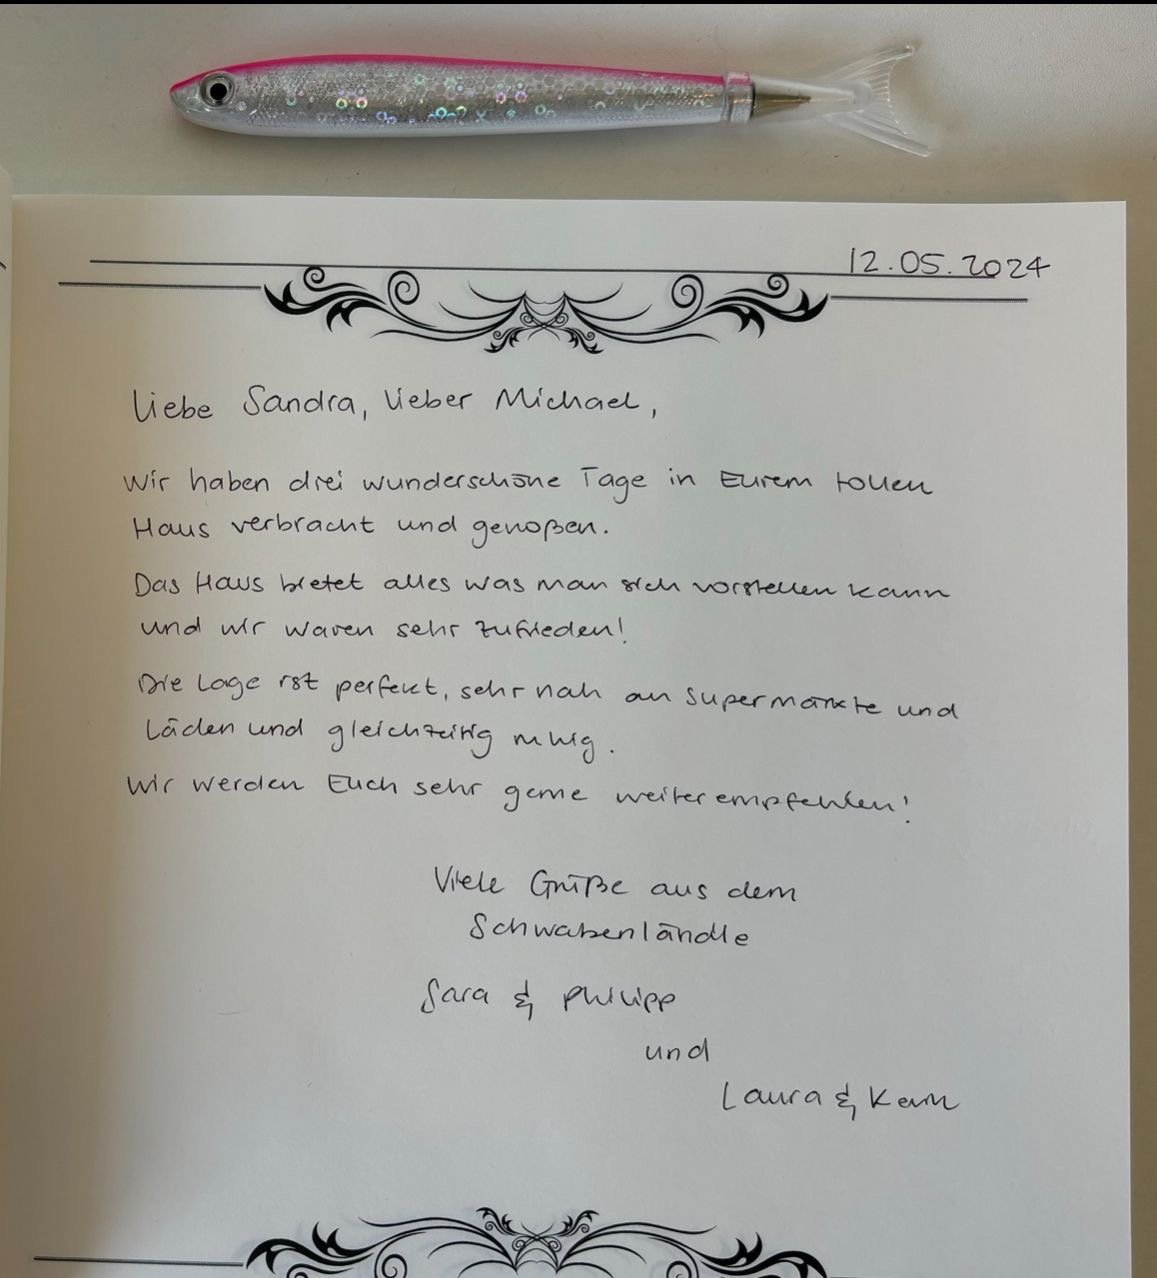 12.05.2024
Liebe Sandra, lieber Michael,
Wir haben drei wunderschöne Tage in Eurem tollen
Haus verbracht und genoßen.
Das Haus bietet alles was man sich vorstellen kann
und wir waren sehr zufrieden!
Die Lage ist perfekt, sehr nah an Supermärkte und
Läden und gleichzeitig ruhig.
Wir werden Euch sehr gerne weiterempfehlen!
Viele Grüße aus dem
Schwabenländle
Sara & Philipp
und
Laura &